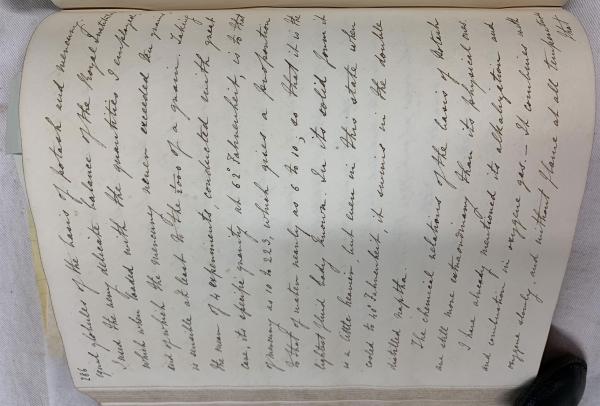 286
equal globules of the basis of potash and mercury.
I used the very delicate balance of the Royal Institution
which when loaded with the quantities I employed
and of which the mercury never exceeded ten grains
is sensible at least to the 1/2000 of a grain. Taking
the mean of 4 experiments, conducted with great
care, its specific gravity at 62° Fahrenheit, is to that
of mercury as 10 to 223, which gives a proportion
to that of water nearly as 6 to 10; so that it is the
lightest fluid body known. In its solid form it
is a little heavier, but even in this state when
cooled to 40° Fahrenheit, it swims in the double
distilled naptha.
The chemical relations of the basis of Potash
are still more extraordinary than its physical ones.
I have already mentioned its alkalization and
and combustion in oxygene gas. — It combines with
oxygene slowly and without flame at all temperatures
that